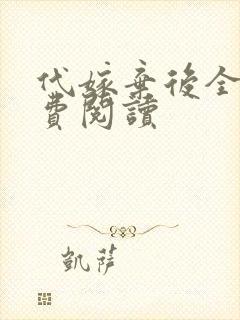 代嫁棄後全
費閱讀
凱薩